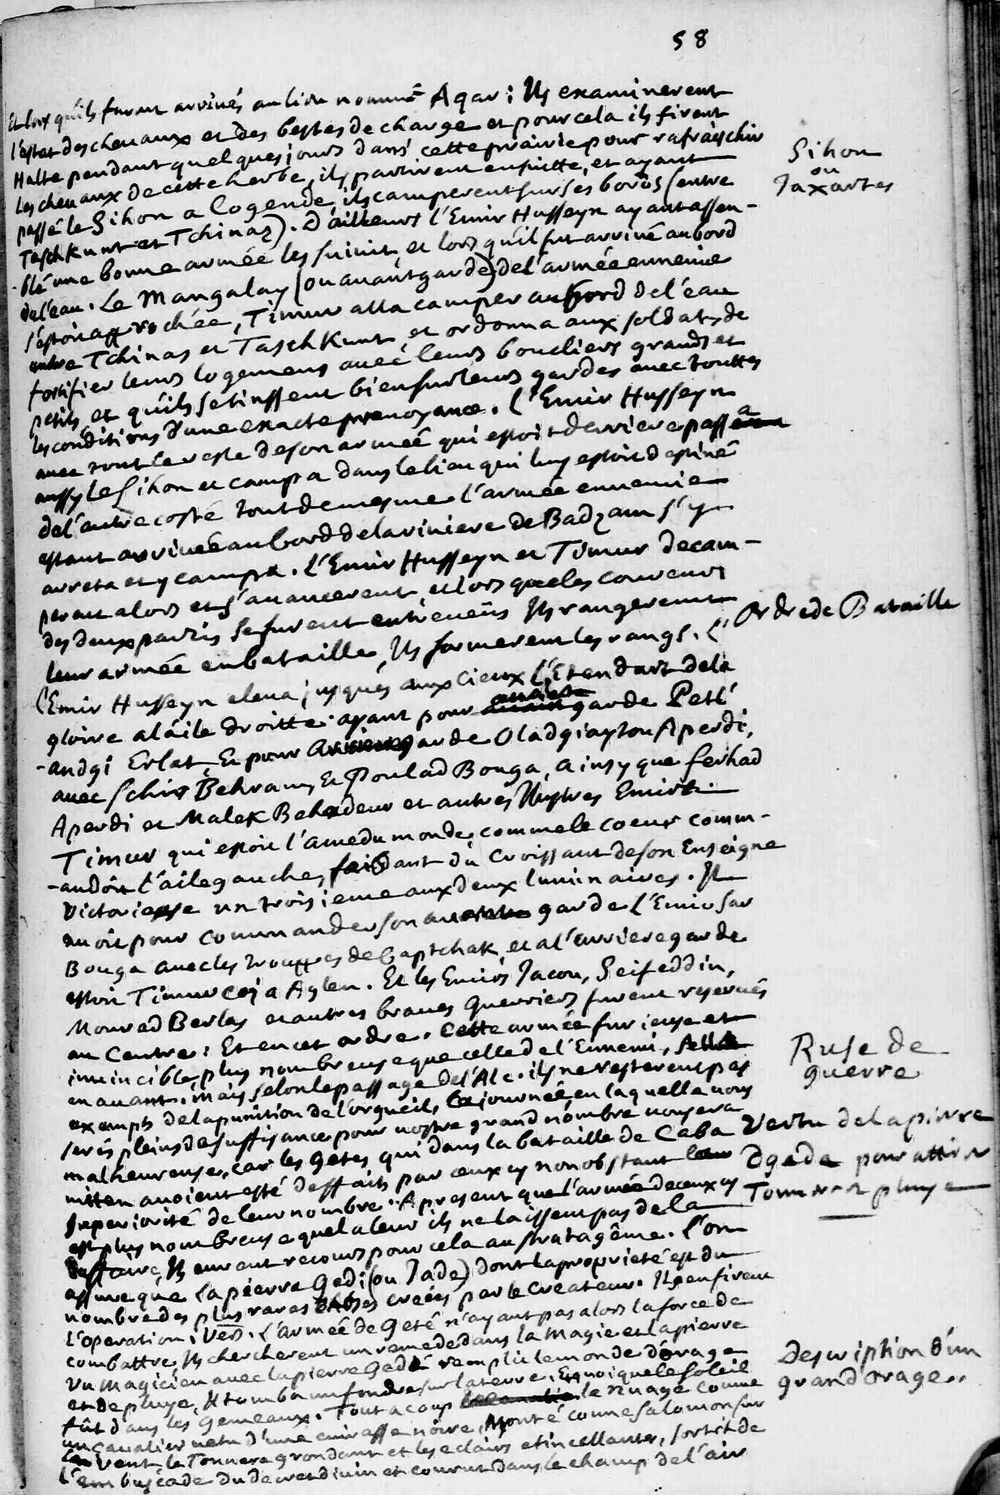 58
Et lors qu'ils furent arrivés au lieu nommé Aqar: Ils examinerent
l'estat des chevaux et des bestes de charge et pour cela ils firent
Halte pendant quelques jours dans cette prairie pour rafraischir
Les chevaux de cette herbe, ils partirent ensuitte, et ayant
passé le Sihon a Cogende, ils camperent sur ses bords (entre
Sihon
ou
Jaxartes
TaschKunt et Tchinaz). D'ailleurs l'Emir Husseyn ayant assem-
-blé une bonne armée les suivit, et lors qu'il fut arrivé au bord
de l'eau. Le Mangalay (ou avant garde) de l'armée ennemie
s'estoit approchée, Timur alla camper au bord de l'eau
entre Tchinas et TaschKunt, et ordonna aux soldats de
fortifier leurs logemens avec leurs boucliers grands et
petits, et qu'ils se tinssent bien sur leurs gardes avec touttes
les conditions d'une exacte prevoyance. l'Emir Husseyn
avec tout le reste de son armée qui estoit derriere passa
aussy le Sihon et campa dans le lieu qui luy estoit destiné
de l'autre costé tout de mesme l'armée ennemie
estant arrivée au bord de la riviere de Badzam s'y
arreta et y campa. l'Emir Husseyn et Timur decam-
perent alors et s'avancerent, et lors que les coureurs
des deux partis se furent entreveus Ils rangerent
leur armée en bataille, Ils formerent les rangs. l'
Ordre de Bataille
l'Emir Husseyn eleva jusques aux Cieux l'Etendart de la
gloire a l'aile droitte. ayant pour garde Petl'
-andgi Erlat, Et pour garde Oladgiaytou Aperdi,
avec Schir Behram, Et Poulad Bouga, ainsy que ferhad
Aperdi et Malek Behadeur et autres Illustres Emirs.
Timur qui estoit l'ame du monde, comme le coeur comm-
-andoit l'aile gauche, faisant du Croissant de son Enseigne
Victorieuse un troisieme aux deux luminaires. Il
avoit pour commander son garde l'Emir Sar
Bouga avec les trouppes de Captchak, et a l'arriere garde
estoit Timur Coja Aglen. Et les Emirs Jacou, Seifeddin,
Mourad Berlas et autres braves Guerriers furent reservés
au Centre: Et en cet ordre. Cette armée furieuse et
invincible, plus nombreuse que celle de l'Ennemi,
en avant. Mais selon le passage de l'Alc. ils ne resterent pas
Ruse de
guerre
exempts de la punition de l'orgueil, la journée en laquelle vous
serés pleins de suffisance pour vostre grand nombre vous sera
malheureuse, car les Getes qui dans la bataille de Caba
mitten avoient esté deffaits par ceux cy nonobstant
superiorité de leur nombre. A present que l'armée de ceux cy
est plus nombreuse que la leur ils ne laissent pas de la
deffaire, Ils eurent recours pour cela au stratagême. l'on
Vertu de la pierre
dgede pour attirer
Tonnere et pluye
assure que la pierre Gedi (ou Jade) dont la proprieté est du
nombre des plus rares choses creées par le Createur. Ils en firent
l'operation: Vers. l'armée de Geté n'ayant pas alors la force de
combattre, Ils chercherent un remede dans la Magie et la pierre
Un Magicien avec la pierre Gedé remplit le monde d'orage
et de pluye, Il tomba un foudre sur la terre. Et quoique le soleil
fût dans les Gemeaux. Tout a coup le nuage comme
Description d'un
grand orage..
un Cavalier vetu d'une cuirasse noire, Monté comme Salomon sur
le Vent le Tonnere grondant et les eclairs etincellants, sortit de
l'embuscade du decret divin et courut dans le champ de l'air